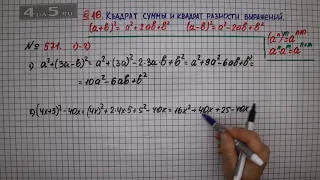 4АП5УП.РФ
§ 16. КВАДРАТ СУММЫ И КВАДРАТ РАЗНОСТИ ВЫРАЖЕНИЙ.
(a+b)² = a²+2ab+b² (a-b)² = a²-2ab+b²
№ 571. 1)-2)
(aⁿ)ᵐ = aⁿᵐ
aⁿaᵐ = aⁿ⁺ᵐ
1) a²+(3a-b)² = a²+(3a)²-2·3a·b+b² = a²+9a²-6ab+b² =
= 10a²-6ab+b²
2) (4x+5)²-40x = (4x)²+2·4x·5+5²-40x = 16x²+40x+25-40x